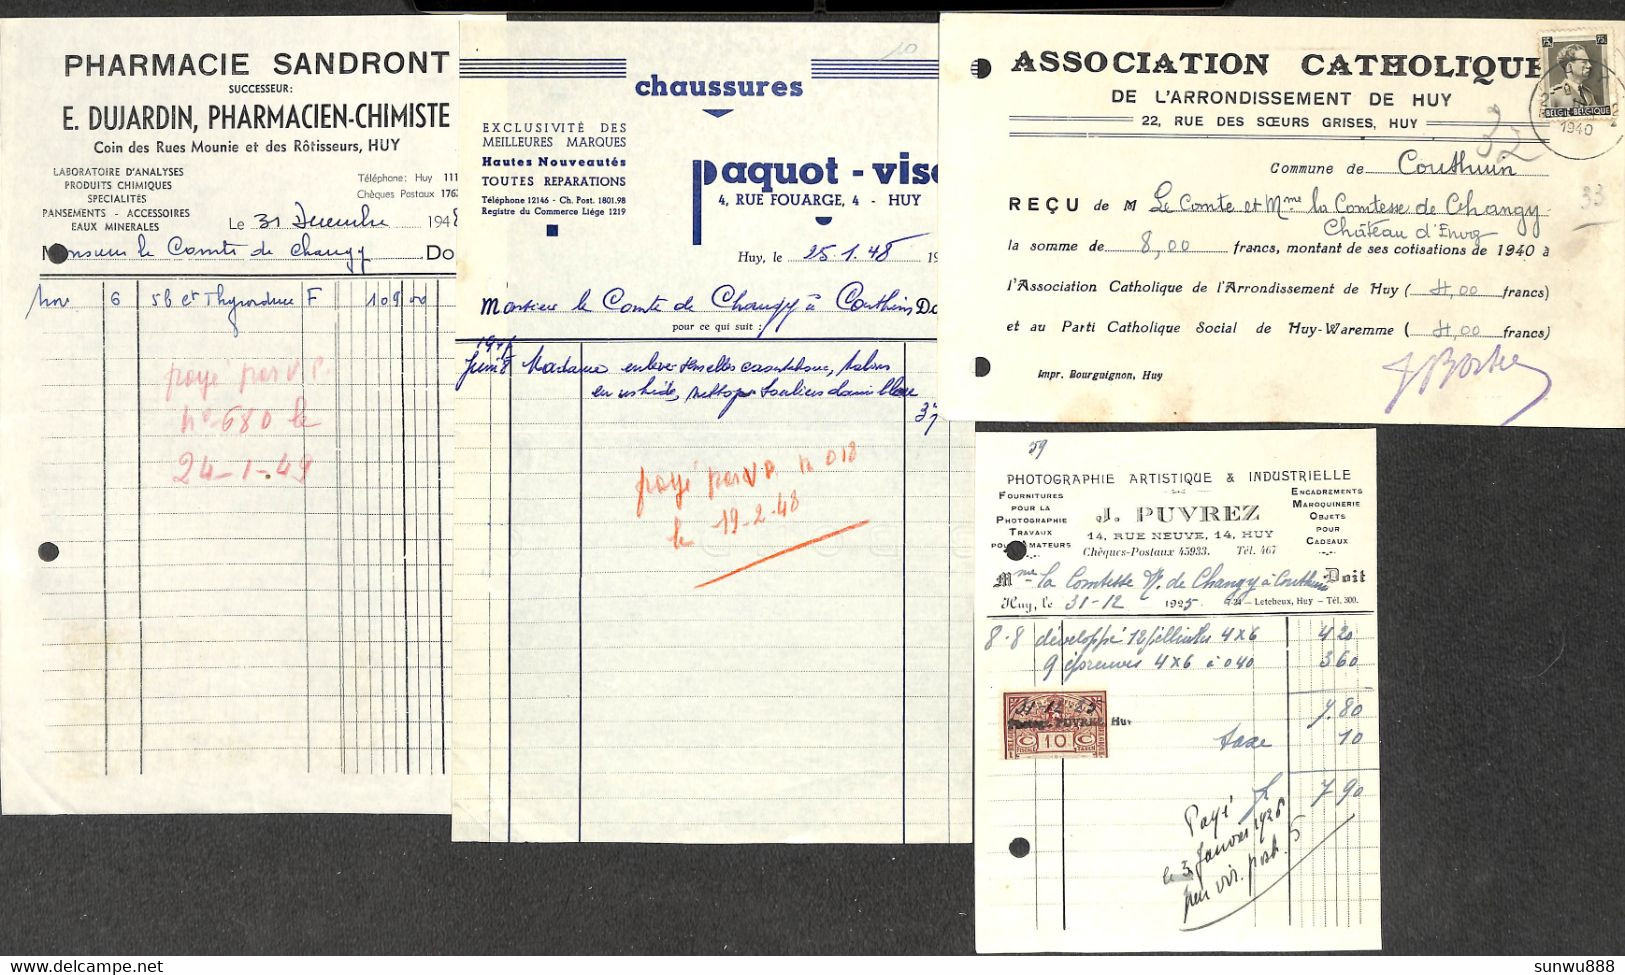 PHARMACIE SANDRONT
SUCCESSEUR:
E. DUJARDIN, PHARMACIEN-CHIMISTE
Coin des Rues Mounie et des Rôtisseurs, HUY
LABORATOIRE D'ANALYSES
PRODUITS CHIMIQUES
SPECIALITÉS
PANSEMENTS - ACCESSOIRES
EAUX MINERALES
Téléphone: Huy 111
Chèques Postaux 1762
Le 31 Decembre 1948
Monsieur le Comte de Changy Do
Nov 6 F 109 00
payé par V.P.
n° 680 le
24-1-49
10
chaussures
EXCLUSIVITÉ DES
MEILLEURES MARQUES
Hautes Nouveautés
TOUTES REPARATIONS
Téléphone 12146 - Ch. Post. 1801.98
Registre du Commerce Liége 1219
paquot - vis
4, RUE FOUARGE, 4 - HUY
Huy, le 25.1.48 19
Monsieur le Comte de Changy à Couthuin Do
pour ce qui suit :
Juin 8 Madame semelles caoutchouc, talons
souliers daim bleu
37
payé par V.P. n 018
le 19-2-48
ASSOCIATION CATHOLIQUE
DE L'ARRONDISSEMENT DE HUY
22, RUE DES SŒURS GRISES, HUY
75c 75c
BELGIE-BELGIQUE
1940
32
33
Commune de Couthuin
REÇU de M Le Comte et Mme la Comtesse de Changy
Château d'Envoz
la somme de 8,00 francs, montant de ses cotisations de 1940 à
l'Association Catholique de l'Arrondissement de Huy ( 4,00 francs)
et au Parti Catholique Social de Huy-Waremme ( 4,00 francs)
Impr. Bourguignon, Huy
59
PHOTOGRAPHIE ARTISTIQUE & INDUSTRIELLE
FOURNITURES
POUR LA
PHOTOGRAPHIE
TRAVAUX
POUR AMATEURS
J. PUVREZ
14, RUE NEUVE, 14, HUY
Chèques-Postaux 45933. Tél. 467
ENCADREMENTS
MAROQUINERIE
OBJETS
POUR
CADEAUX
Mme la Comtesse V. de Changy à Couthuin Doit
Huy, le 31-12 1925 Letcheux, Huy - Tél. 300.
8-8 développé 12 pellicules 4x6 4 20
9 épreuves 4x6 à 040 3 60
7.80
31-12-25
PUVREZ Huy
C 10 C
taxe 10
7 90
Payé
le 3 Janvier 1926
par vir. post. 5
sunwu888